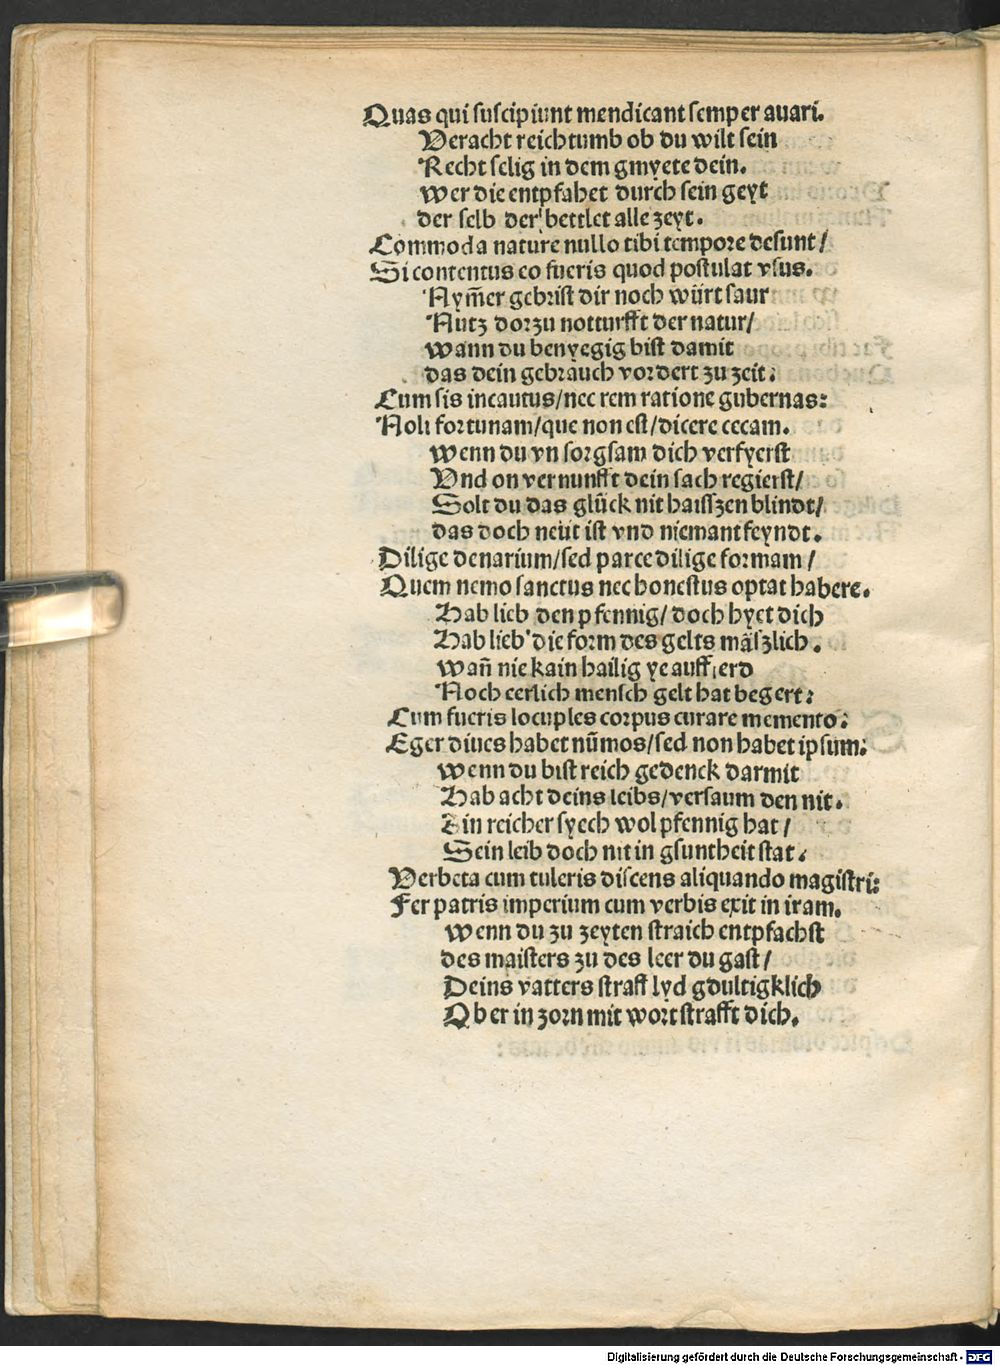 Quas qui suscipiunt mendicant semper auari.
Veracht reichtumb ob du wilt sein
Recht selig in dem gmyete dein.
wer die entpfahet durch sein geyt
der selb der bettlet alle zeyt.
Commoda nature nullo tibi tempore desunt/
Si contentus eo fueris quod postulat vsus.
Nym̃er gebrist dir noch würt saur
Nutz dorzu notturfft der natur/
wann du benyegig bist damit
das dein gebrauch vordert zu zeit:
Cum sis incautus/nec rem ratione gubernas:
Noli fortunam/que non est/dicere cecam.
wenn du vn sorgsam dich verfyerst
Vnd on vernunfft dein sach regierst/
Solt du das glück nit haisszen blindt/
das doch neüt ist vnd niemant feyndt.
Dilige denarium/sed parce dilige formam/
Quem nemo sanctus nec honestus optat habere.
Hab lieb den pfennig/doch hyet dich
Hab lieb die form des gelts mäszlich.
wañ nie kain hailig ye auff erd
Noch eerlich mensch gelt hat begert:
Cum fueris locuples corpus curare memento:
Eger diues habet nũmos/sed non habet ipsum:
wenn du bist reich gedenck darmit
Hab acht deins leibs/versaum den nit.
Ein reicher syech wol pfennig hat/
Sein leib doch nit in gsuntheit stat.
Verbeta cum tuleris discens aliquando magistri:
Fer patris imperium cum verbis exit in iram.
wenn du zu zeyten straich entpfachst
des maisters zu des leer du gast/
Deins vatters straff lyd gdultigklich
Ob er in zorn mit wort strafft dich.
Digitalisierung gefördert durch die Deutsche Forschungsgemeinschaft - DFG